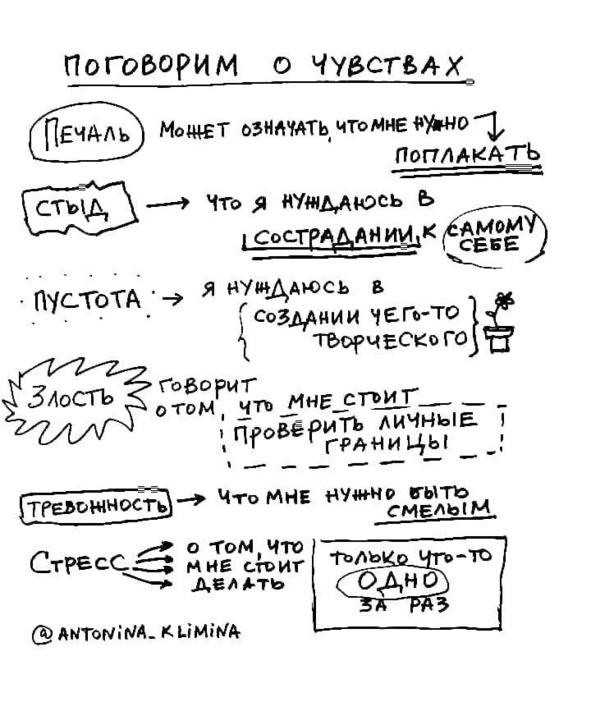 ПОГОВОРИМ О ЧУВСТВАХ
ПЕЧАЛЬ МОЖЕТ ОЗНАЧАТЬ, ЧТО МНЕ НУЖНО
ПОПЛАКАТЬ
СТЫД ЧТО Я НУЖДАЮСЬ В
СОСТРАДАНИИ К САМОМУ
СЕБЕ
ПУСТОТА Я НУЖДАЮСЬ В
СОЗДАНИИ ЧЕГО-ТО
ТВОРЧЕСКОГО
ЗЛОСТЬ ГОВОРИТ
О ТОМ, ЧТО МНЕ СТОИТ
ПРОВЕРИТЬ ЛИЧНЫЕ
ГРАНИЦЫ
ТРЕВОЖНОСТЬ ЧТО МНЕ НУЖНО БЫТЬ
СМЕЛЫМ
СТРЕСС О ТОМ, ЧТО
МНЕ СТОИТ
ДЕЛАТЬ
ТОЛЬКО ЧТО-ТО
ОДНО
ЗА РАЗ
@ANTONINA_KLIMINA